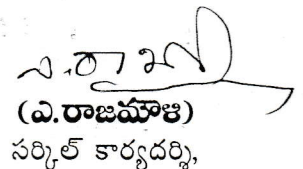 ఎ.రాజమౌళి
(ఎ.రాజమౌళి)
సర్కిల్ కార్యదర్శి,